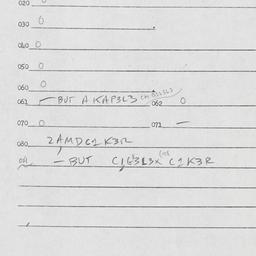 020 0
030 0
040 0
050 0
060 0
061 – BUT A KAP3L3 062 0
070 0 071 –
080 2AMDG1K3R
081 – BUT C1G3L3X C1K3R